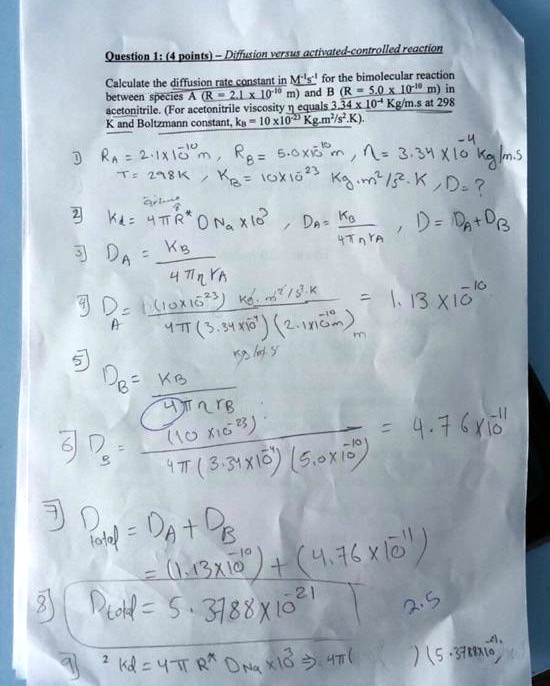 Question 1: (4 points) – Diffusion versus activated-controlled reaction
Calculate the diffusion rate constant in M⁻¹s⁻¹ for the bimolecular reaction
between species A (R = 2.1 x 10⁻¹⁰ m) and B (R = 5.0 x 10⁻¹⁰ m) in
acetonitrile. (For acetonitrile viscosity η equals 3.34 x 10⁻⁴ Kg/m.s at 298
K and Boltzmann constant, k_B = 10 x10⁻²³ Kg.m²/s².K).
1) R_A = 2.1x10⁻¹⁰ m, R_B = 5.0x10⁻¹⁰ m, η = 3.34 x 10⁻⁴ kg/m.s
T = 298K, K_B = 10x10⁻²³ Kg.m²/s².K, D = ?
2) Kd = 4πR* D Na x10³, D_A = K_B / 4πηr_A, D = D_A + D_B
3) D_A = K_B / 4πηr_A
4) D_A = (10x10⁻²³) Kg.m²/s².K / 4π(3.34x10⁻⁴)(2.1x10⁻¹⁰m) = 1.13 x10⁻¹⁰
kg/m.s m
5) D_B = K_B / 4πηr_B
6) D_B = (10 x10⁻²³) / 4π(3.34x10⁻⁴)(5.0x10⁻¹⁰) = 4.76x10⁻¹¹
7) D_total = D_A + D_B
= (1.13x10⁻¹⁰) + (4.76x10⁻¹¹)
8) D_total = 5.3788x10⁻²¹
2.5
9) 2 Kd = 4π R* D Na x10³ ⇒ 4π( )(5.3788x10